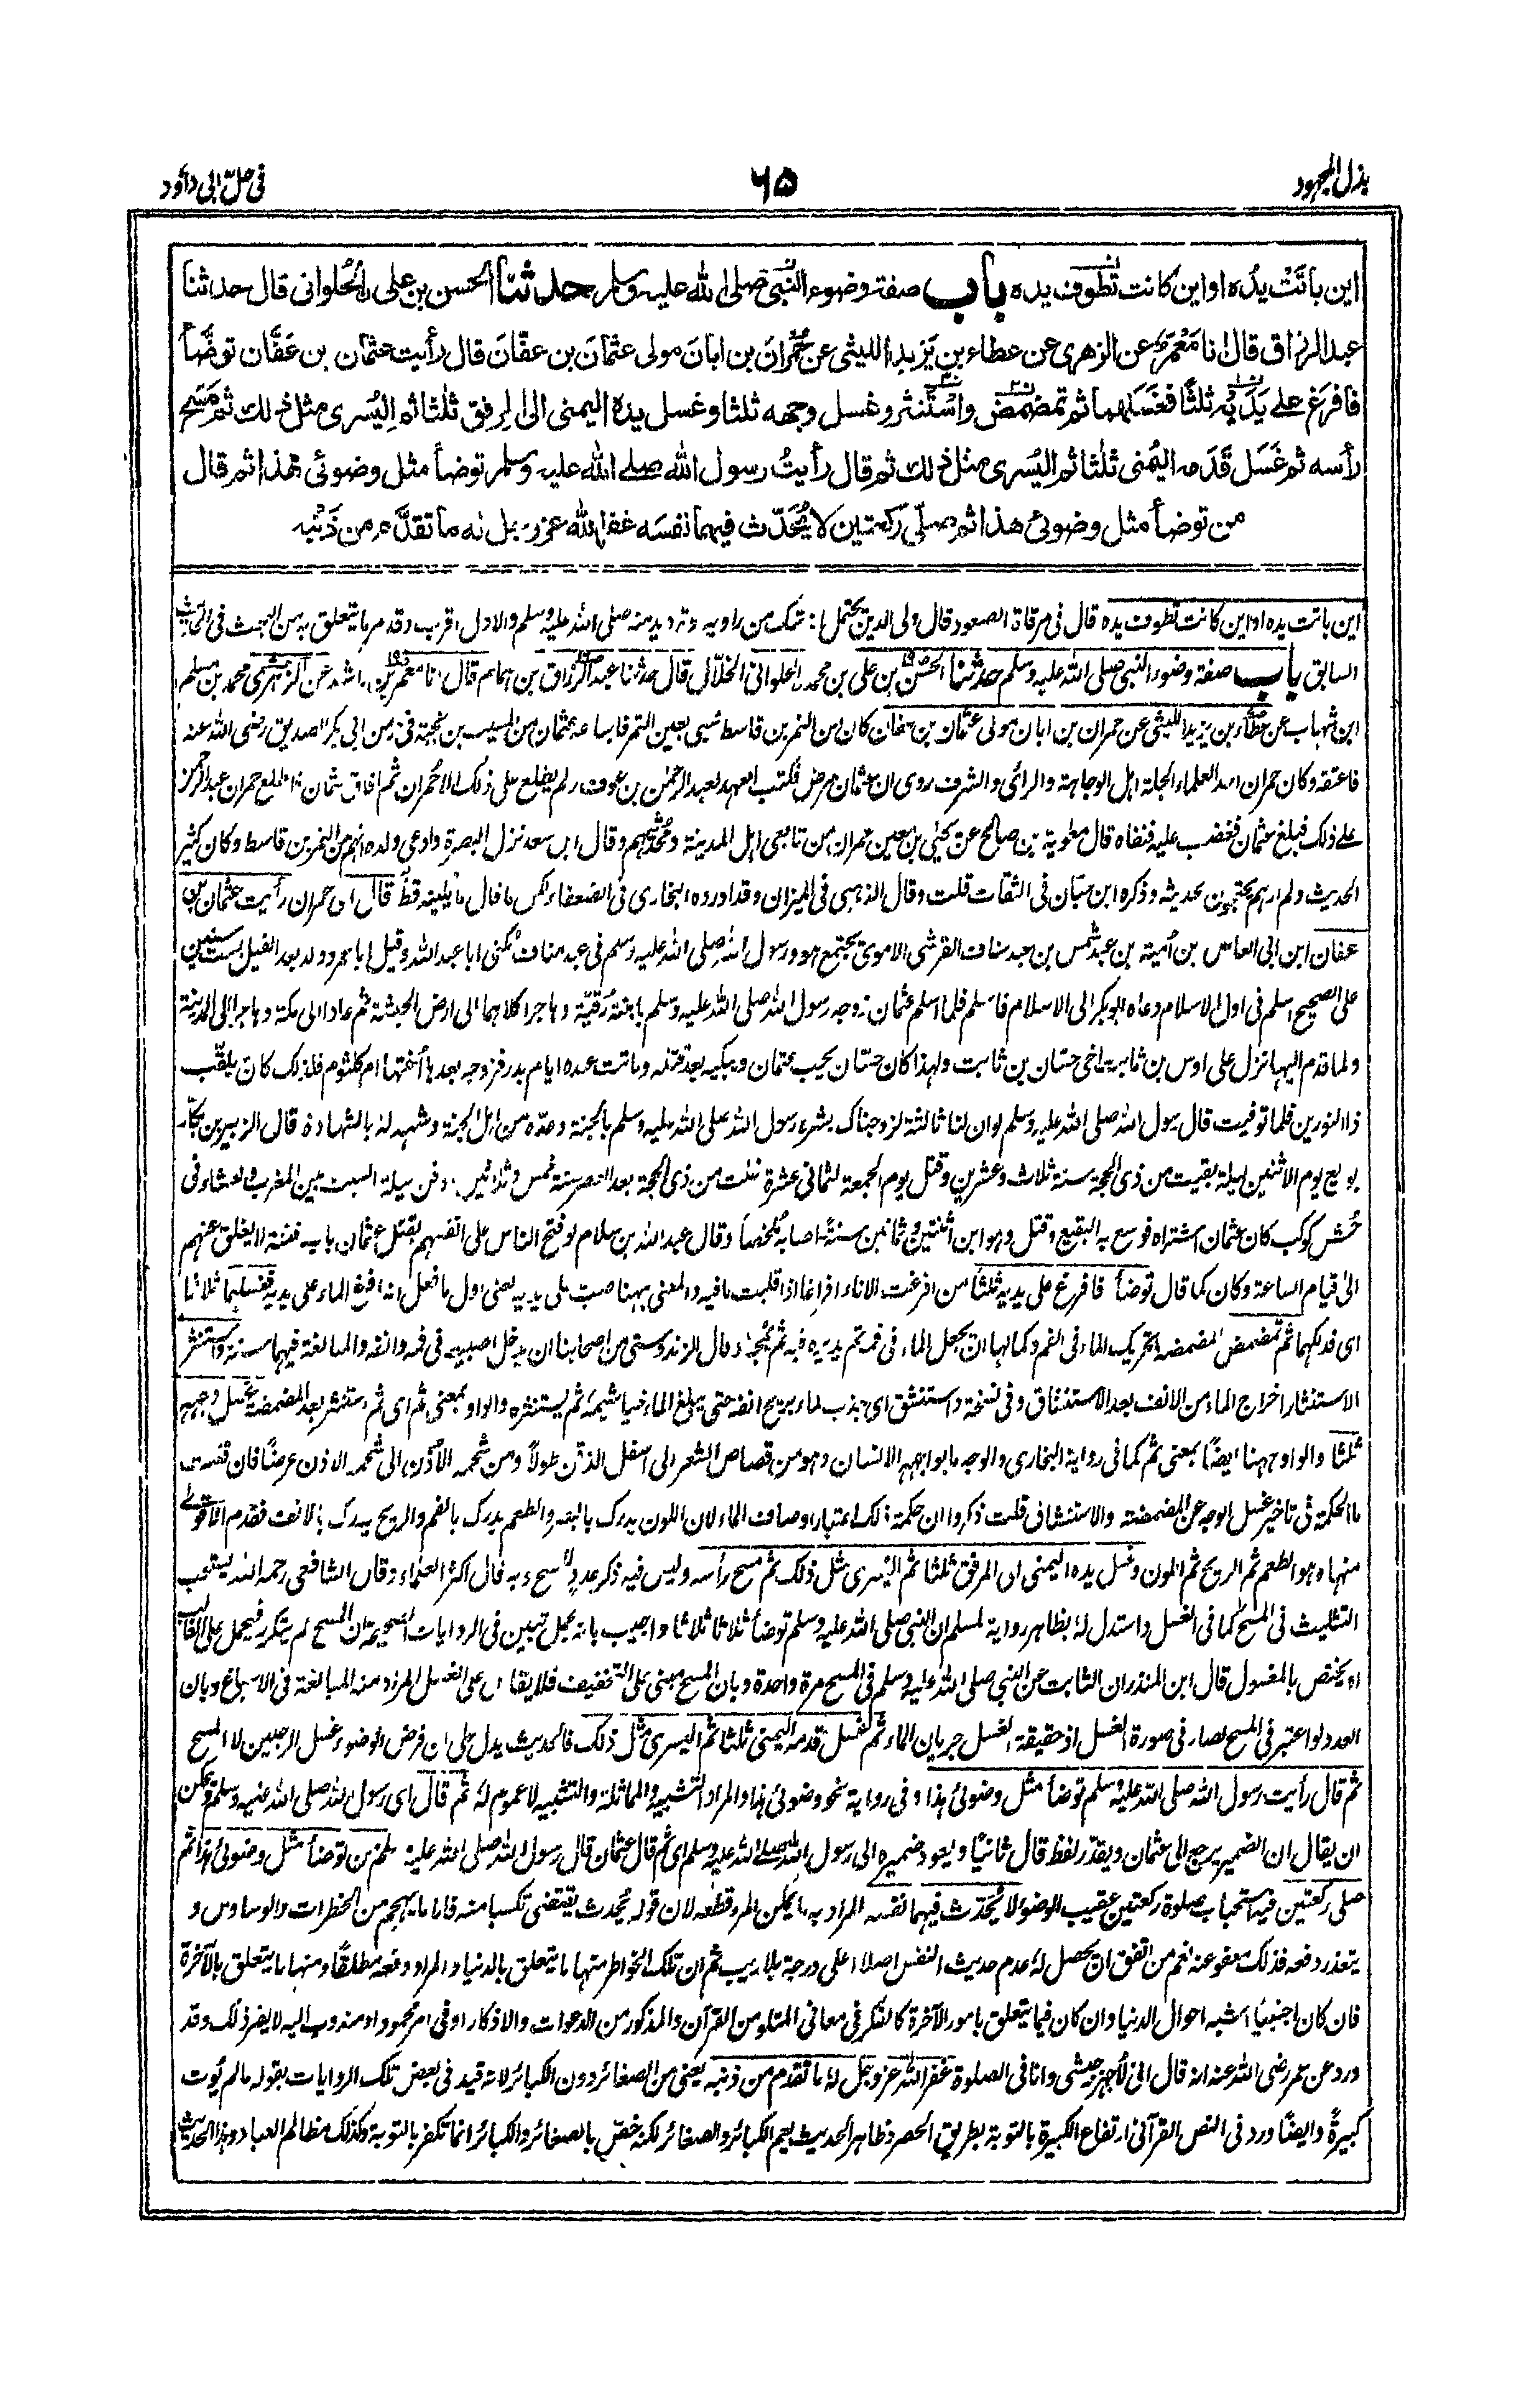 بذل المجهود
٦٥
فى حل ابى داؤد
اين باتت يده او اين كانت تطوف يده باب صفة وضوء النبى صلى الله عليه وسلم حدثنا الحسن بن على الحلوانى قال حدثنا
عبد الرزاق قال انا معمر عن الزهرى عن عطاء بن يزيد الليثى عن حمران بن ابان مولى عثمان بن عفان قال رأيت عثمان بن عفان توضأ
فافرغ على يديه ثلثا فغسلهما ثم تمضمض واستنثر وغسل وجهه ثلثا وغسل يده اليمنى الى المرفق ثلثا ثم اليسرى مثل ذلك ثم مسح
رأسه ثم غسل قدمه اليمنى ثلثا ثم اليسرى مثل ذلك ثم قال رأيت رسول الله صلے الله عليه وسلم توضأ مثل وضوئى هذا ثم قال
من توضأ مثل وضوئى هذا ثم صلى ركعتين لا يحدث فيهما نفسه غفر الله عز وجل له ما تقدم من ذنبه
اين باتت يده او اين كانت تطوف يده قال فى مرقاة الصعود قال ولى الدين يحتمل انه شك من راويه وترديد منه صلى الله عليه وسلم والاول اقرب وقد مر ما يتعلق به من البحث فى الحديث
السابق باب صفة وضوء النبى صلى الله عليه وسلم حدثنا الحسن بن على بن محمد الحلوانى الخلال قال حدثنا عبد الرزاق بن همام قال انا معمر بن راشد عن الزهرى محمد بن مسلم
ابن شهاب عن عطاء بن يزيد الليثى عن حمران بن ابان مولى عثمان بن عفان كان من النمر بن قاسط سبى بعين التمر فابتاعه عثمان من المسيب بن نجبة فى زمن ابى بكر الصديق رضى الله عنه
فاعتقه وكان حمران احد العلماء الجلة اهل الوجاهة والرأى والشرف روى ان عثمان مرض فكتب العهد لعبد الرحمن بن عوف ولم يطلع على ذلك الا حمران ثم افاق عثمان فاطلع حمران عبد الرحمن
على ذلك فبلغ عثمان فغضب عليه فنفاه قال معاوية بن صالح عن يحيى بن معين حمران من تابعى اهل المدينة ومحدثيهم وقال ابن سعد نزل البصرة وادعى ولده انهم من النمر بن قاسط وكان كثير
الحديث ولم ارهم يحتجون بحديثه وذكره ابن حبان فى الثقات قلت وقال الذهبى فى الميزان وقد اورده البخارى فى الضعفاء لكن ما قال ما بليته قط قال اى حمران رأيت عثمان بن
عفان ابن ابى العاص بن أمية بن عبد شمس بن عبد مناف القرشى الاموى يجتمع هو ورسول الله صلى الله عليه وسلم فى عبد مناف يكنى ابا عبد الله وقيل ابا عمرو ولد بعد الفيل بست سنين
على الصحيح اسلم فى اول الاسلام دعاه ابو بكر الى الاسلام فاسلم فلما اسلم عثمان زوجه رسول الله صلى الله عليه وسلم بابنته رقية وهاجرا كلاهما الى ارض الحبشة ثم عادا الى مكة وهاجرا الى المدينة
ولما قدم اليها نزل على اوس بن ثابت اخى حسان بن ثابت ولهذا كان حسان يحب عثمان ويبكيه بعد قتله وماتت عنده ايام بدر فزوجه بعدها أختها ام كلثوم فلذلك كان يلقب
ذا النورين فلما توفيت قال رسول الله صلى الله عليه وسلم لو ان لنا ثالثة لزوجناك بشره رسول الله صلى الله عليه وسلم بالجنة وعده من اهل الجنة وشهد له بالشهادة قال الزبير بن بكار
بويع يوم الاثنين لليلة بقيت من ذى الحجة سنة ثلاث وعشرين وقتل يوم الجمعة لثمانى عشرة خلت من ذى الحجة بعد العصر سنة خمس وثلاثين ودفن ليلة السبت بين المغرب والعشاء فى
حش كوكب كان عثمان اشتراه فوسع به البقيع وقتل وهو ابن اثنتين وثمانين سنة اصابه ملخصا وقال عبد الله بن سلام لو فتح الناس على انفسهم بقتل عثمان باب فتنة لا يغلق عنهم
الى قيام الساعة وكان كما قال توضأ فافرغ على يديه ثلثا من افرغت الاناء افراغا اذا قلبت ما فيه والمعنى ههنا صب على يديه يعنى اول ما فعل انه افرغ الماء على يديه فغسلهما ثلاثا
اى فدلكهما ثم تمضمض المضمضة تحريك الماء فى الفم وكمالها ان يجعل الماء فى فمه ثم يديره فيه ثم يمجه وقال الزندوستى من اصحابنا ان يدخل اصبعه فى فمه وانفه والمبالغة فيهما سنة واستنثر
الاستنثار اخراج الماء من الانف بعد الاستنشاق وفى نسخة واستنشق اى جذب الماء بريح انفه حتى يبلغ الماء خياشيمه ثم يستنثره والواو بمعنى ثم اى ثم استنثر بعد المضمضة غسل وجهه
ثلثا والواو ههنا ايضا بمعنى ثم كما فى رواية البخارى والوجه ما يواجهه الانسان وهو من قصاص الشعر الى اسفل الذقن طولا ومن شحمة الأذن الى شحمة الاذن عرضا فان قلت
ما الحكمة فى تاخير غسل الوجه عن المضمضة والاستنشاق قلت ذكروا ان حكمة ذلك اعتبار اوصاف الماء لان اللون يدرك بالبصر والطعم يدرك بالفم والريح يدرك بالانف فقدم الاقوى
منها وهو الطعم ثم الريح ثم اللون وغسل يده اليمنى الى المرفق ثلثا ثم اليسرى مثل ذلك ثم مسح رأسه وليس فيه ذكر عدد للمسح وبه قال اكثر العلماء وقال الشافعى رحمه الله يستحب
التثليث فى المسح كما فى الغسل واستدل له بظاهر رواية لمسلم ان النبى صلى الله عليه وسلم توضأ ثلاثا ثلاثا واجيب بانه مجمل تبين فى الروايات الصحيحة ان المسح لم يتكرر فيحمل على الغالب
او يختص بالمغسول قال ابن المنذر ان الثابت عن النبى صلى الله عليه وسلم فى المسح مرة واحدة وبان المسح مبنى على التخفيف فلا يقاس على الغسل المراد منه المبالغة فى الاسباغ وبان
العدد لو اعتبر فى المسح لصار فى صورة الغسل اذ حقيقة الغسل جريان الماء ثم غسل قدمه اليمنى ثلثا ثم اليسرى مثل ذلك فالحديث يدل على ان فرض الوضوء غسل الرجلين لا المسح
ثم قال رأيت رسول الله صلى الله عليه وسلم توضأ مثل وضوئى هذا وفى رواية نحو وضوئى هذا والمراد التشبيه والمماثلة والتشبيه لا عموم له ثم قال اى رسول الله صلى الله عليه وسلم ويمكن
ان يقال ان الضمير يرجع الى عثمان ويقدر لفظ قال ثانيا ويعود ضميره الى رسول الله صلے الله عليه وسلم اى ثم قال عثمان قال رسول الله صلى الله عليه وسلم من توضأ مثل وضوئى هذا ثم
صلى ركعتين فيه استحباب صلوة ركعتين عقيب الوضوء لا يحدث فيهما نفسه المراد به ما يمكن المرء قطعه لان قوله يحدث يقتضى تكسبا منه فاما ما يهجم من الخطرات والوساوس و
يتعذر دفعه فذلك معفو عنه نعم من اتفق ان يحصل له عدم حديث النفس اصلا اعلى درجة بلا ريب ثم ان تلك الخواطر منها ما يتعلق بالدنيا والمراد دفعه مطلقا ومنها ما يتعلق بالآخرة
فان كان اجنبيا اشبه احوال الدنيا وان كان فيما يتعلق بامور الآخرة كالفكر فى معانى المتلو من القرآن والمذكور من الدعوات والاذكار او فى امر محمود او مندوب اليه لا يضر ذلك وقد
ورد عن عمر رضى الله عنه انه قال انى لأجهز جيشى وانا فى الصلوة غفر الله عز وجل له ما تقدم من ذنبه يعنى من الصغائر دون الكبائر لانه قيد فى بعض تلك الروايات بقوله ما لم يؤت
كبيرة وايضا ورد فى النص القرآنى ارتفاع الكبيرة بالتوبة بطريق الحصر فظاهر الحديث يعم الكبائر والصغائر لكنه خص بالصغائر والكبائر انما تكفر بالتوبة وكذلك مظالم العباد وهذا الحديث